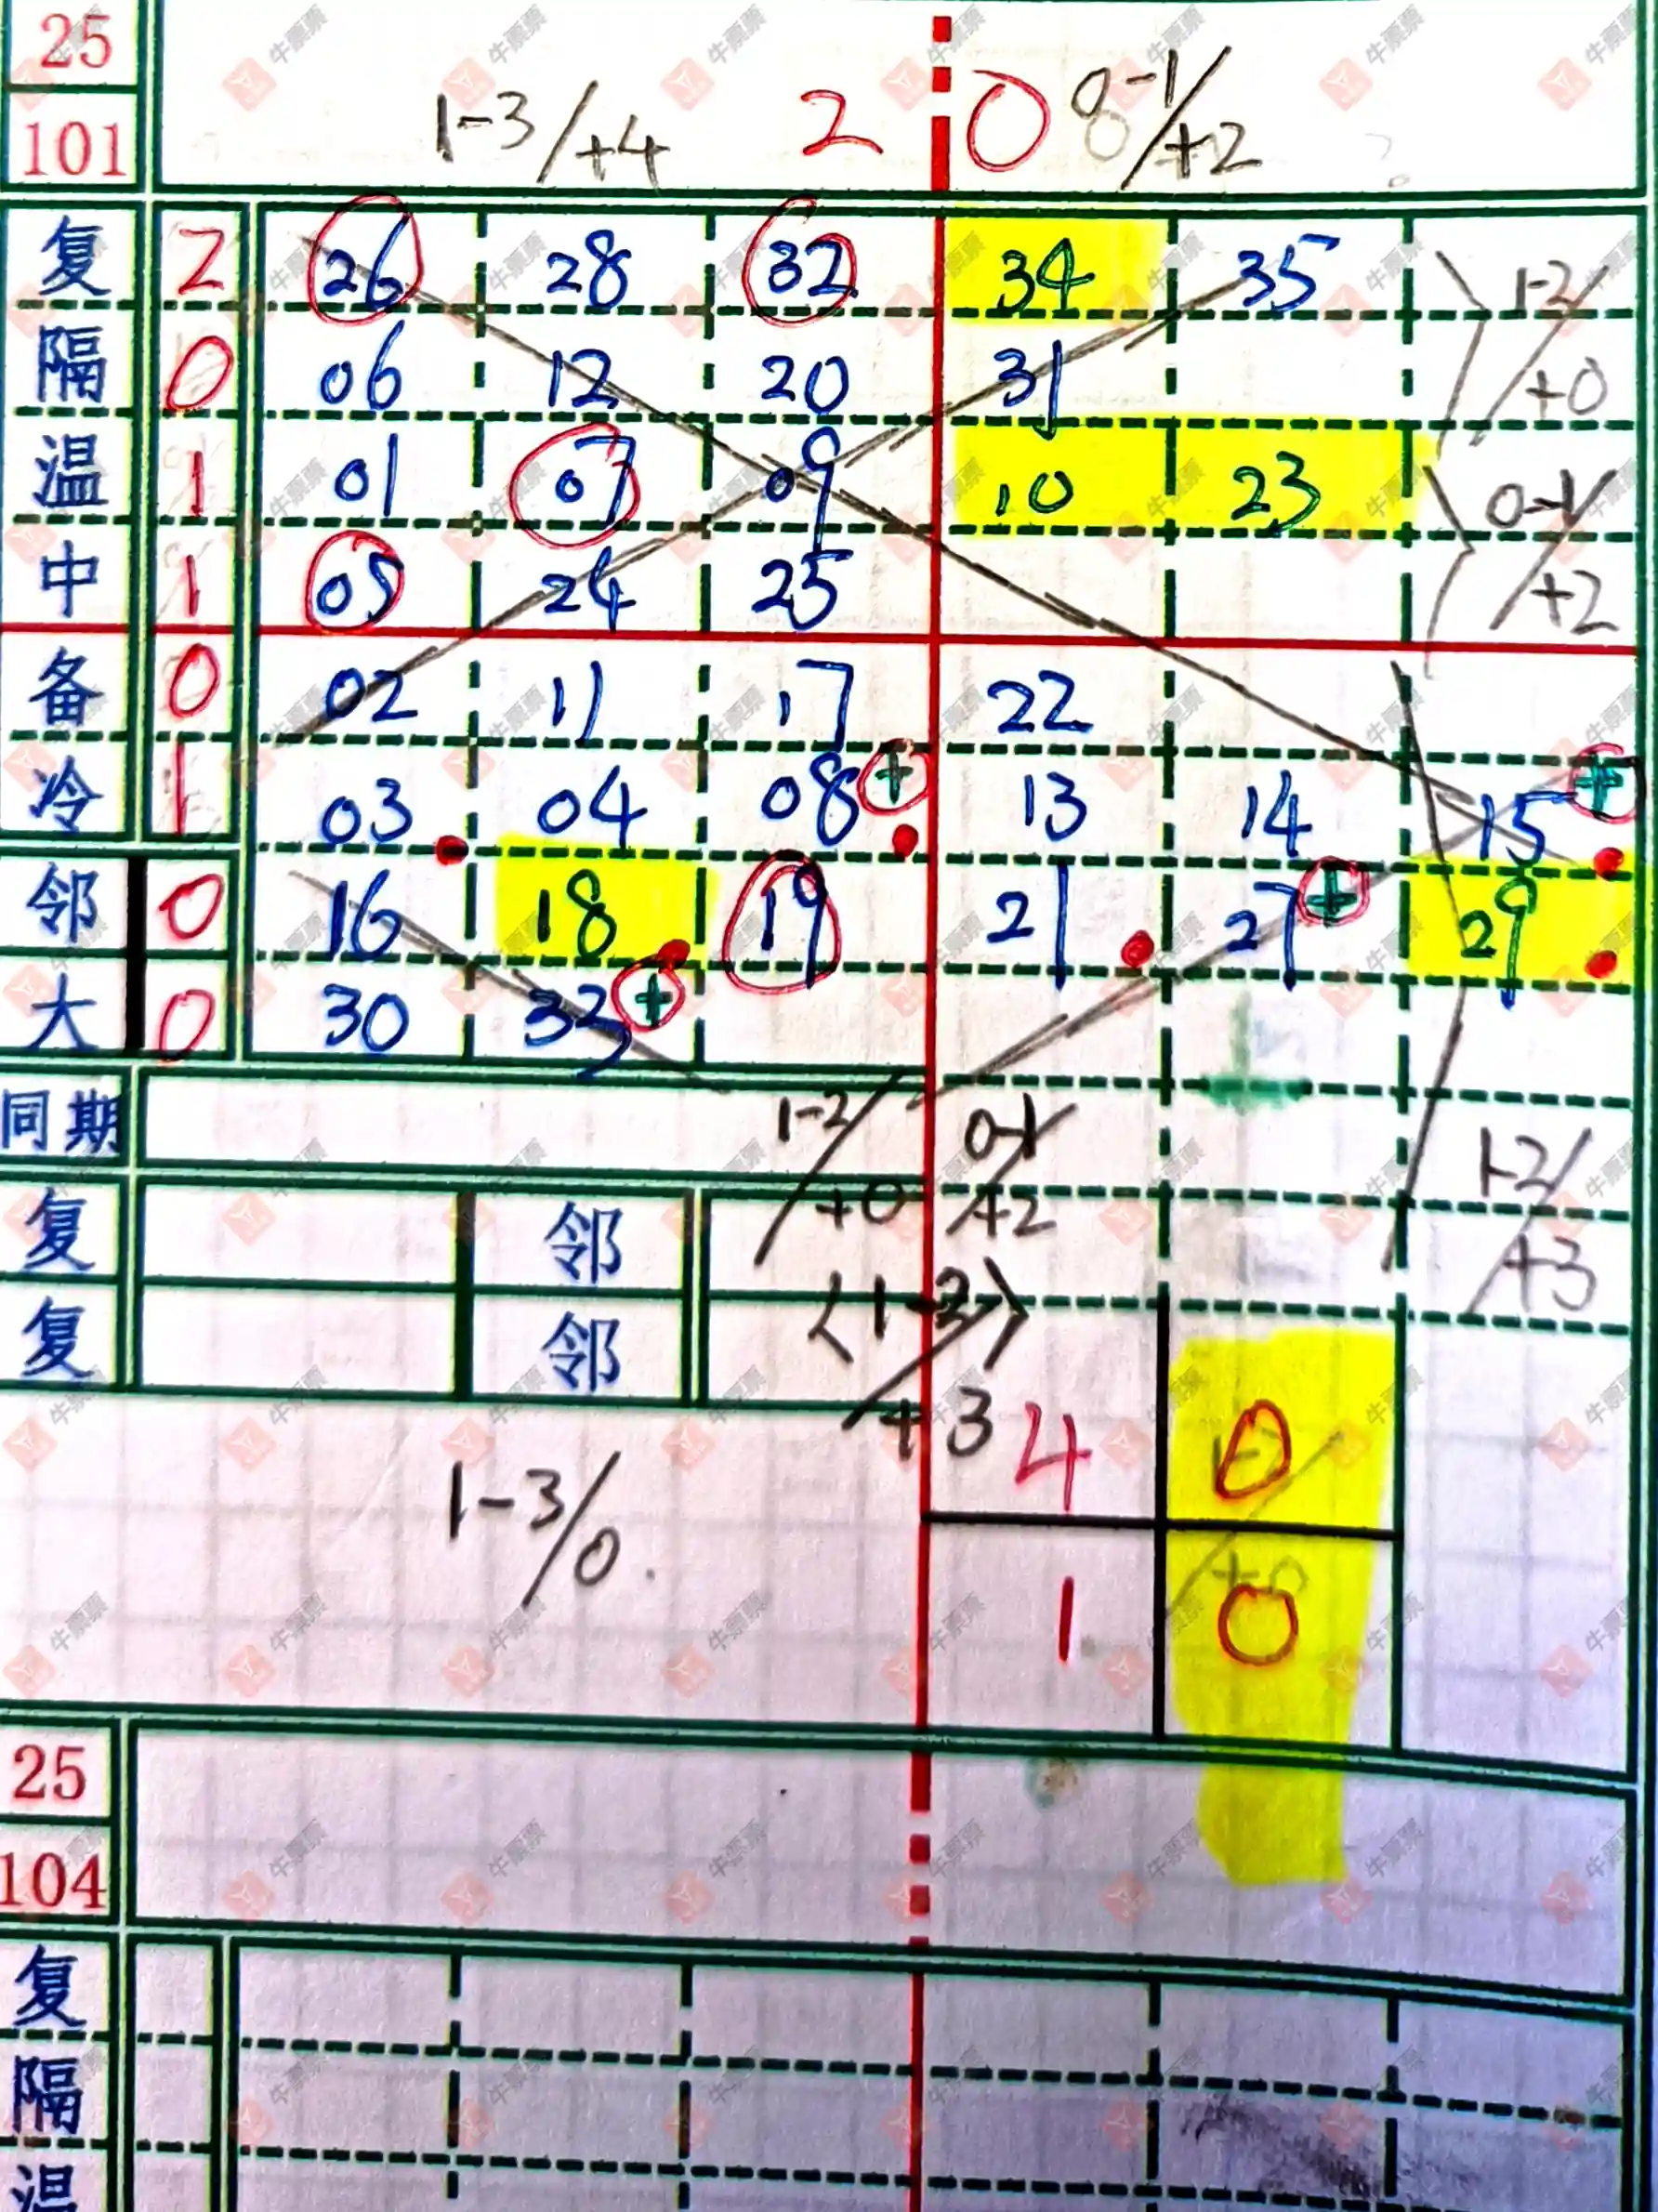 25
101 1-3/+4 2 0 0-1/+2
复 2 26 28 32 34 35 1-2/+0
隔 0 06 12 20 31
温 1 01 07 09 10 23 0-1/+2
中 1 05 24 25
备 0 02 11 17 22
冷 1 03 04 08 + 13 14 15 +
邻 0 16 18 19 21 27 + 29
大 0 30 33 +
同期 1-2/+0 0-1/+2 1-2/+3
复 邻
复 邻 <1-2>/+3
1-3/0. 4 0
+0
1 0
25
104
复
隔
温
牛票票